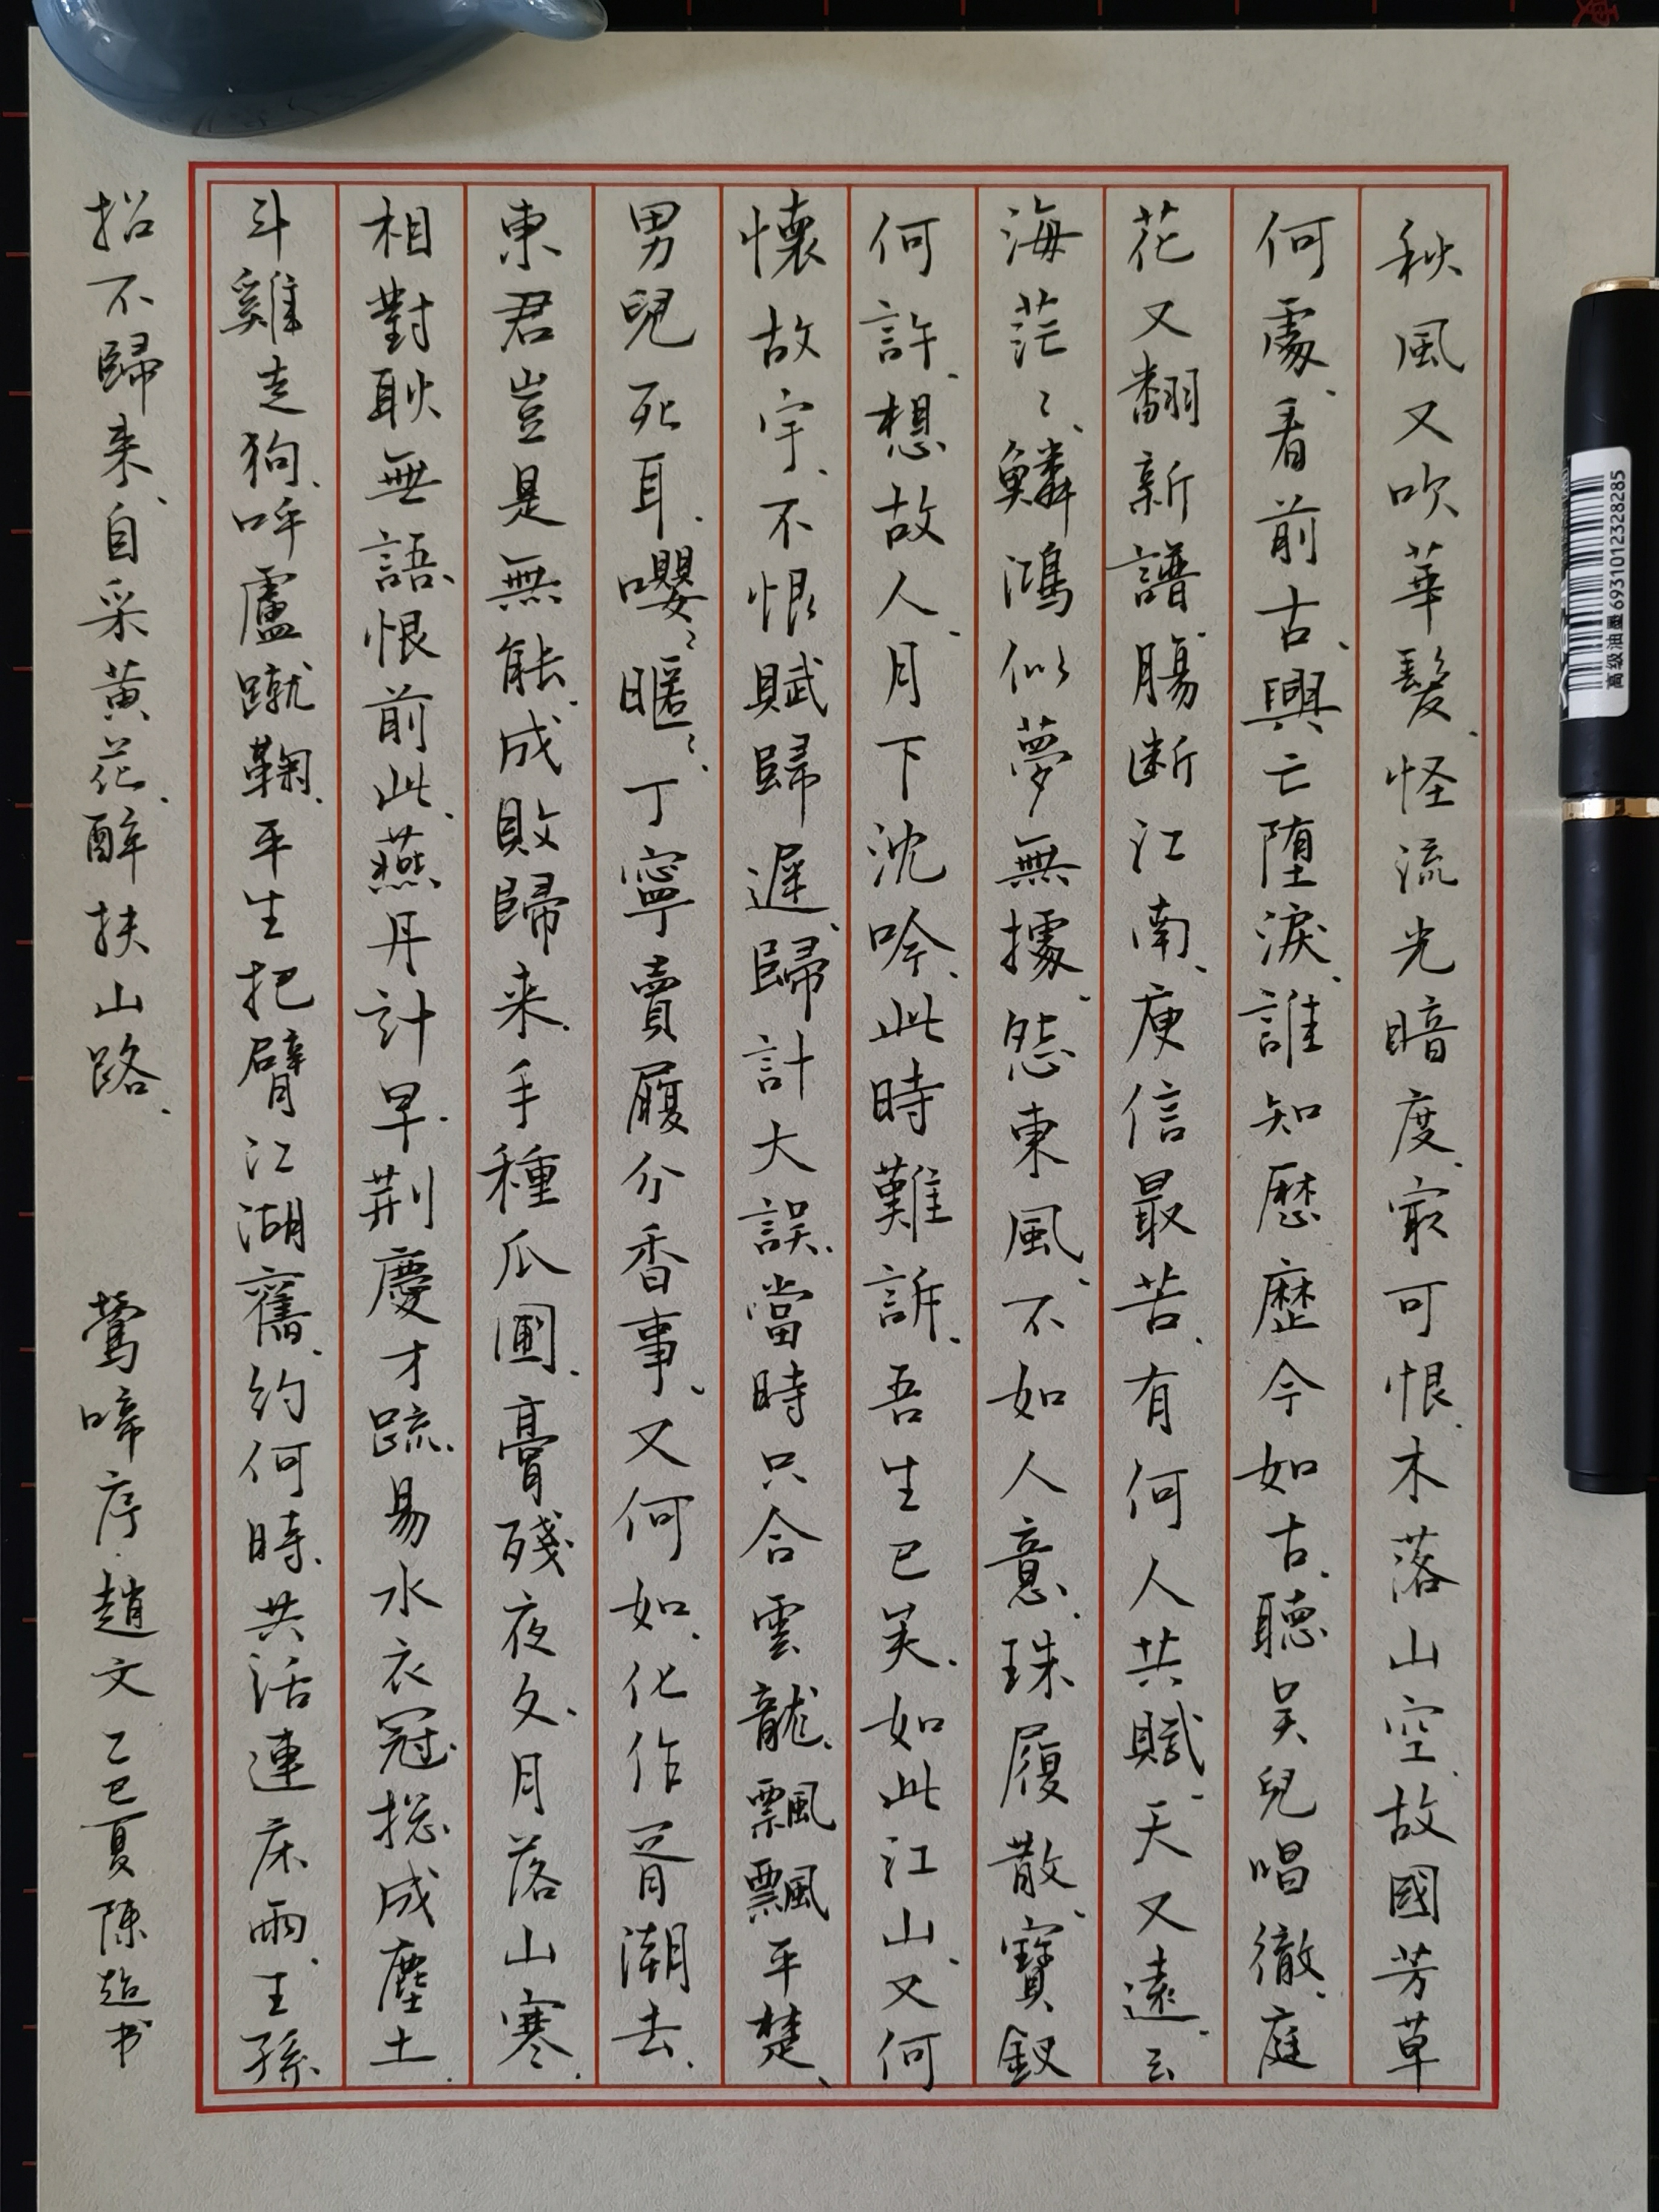 秋風又吹華髮、怪流光暗度、最可恨、木落山空、故國芳草
何處、看前古、興亡墮淚、誰知歷歷今如古、聽吳兒唱徹、庭
花又翻新譜、腸断江南、庾信最苦、有何人共賦、天又遠、云
海茫〻、鱗鴻似夢無據、怨東風、不如人意、珠履散、寶釵
何許、想故人、月下沈吟、此時難訴、吾生已矣、如此江山、又何
懷故宇、不恨賦歸遲、歸計大誤、當時只合雲龍、飄飄平楚、
男兒死耳、嚶〻暱〻、丁寧賣履分香事、又何如、化作胥潮去、
東君豈是無能、成敗歸来、手種瓜圃、膏殘夜久、月落山寒、
相對耿無語、恨前此、燕丹計早、荆慶才疏、易水衣冠、揔成塵土、
斗雞走狗、呼盧蹴鞠、平生把臂江湖舊、約何時、共話連床雨、王孫
招不歸来、自采黄花、醉扶山路、
鶯啼序·趙文 乙巳夏陳超书
高级油墨 6931012328285